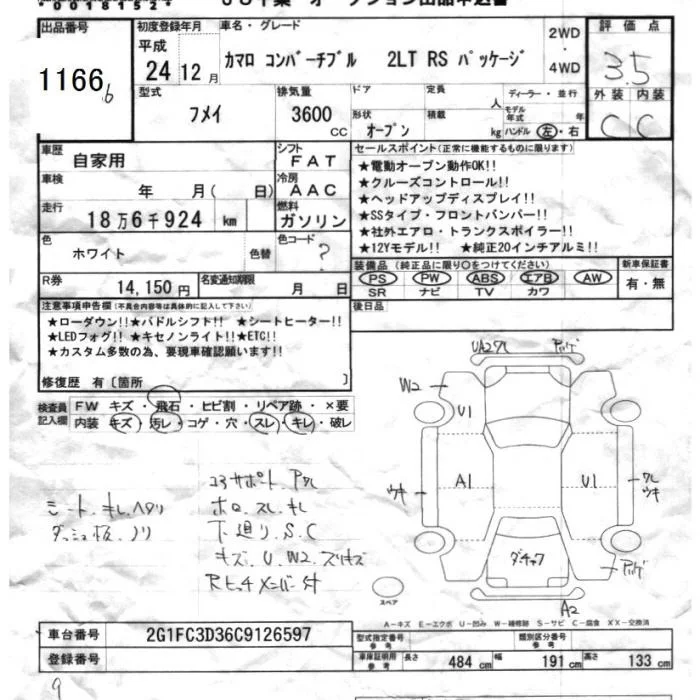 00181524
出品番号
1166
6
初度登録年月
平成
24 12 月
車名・グレード
カマロ コンバーチブル 2LT RS パッケージ
2WD
4WD
評価点
3.5
外装 内装
C C
型式
フメイ
排気量
3600
CC
ドア
形状
オープン
定員
人
積載
kg
ディーラー・並行
モデル年式
年
ハンドル 左・右
車歴
自家用
シフト
FAT
車検
年 月( 日)
冷房
AAC
走行
18万6千924 km
燃料
ガソリン
色
ホワイト
色替
色コード
?
R券
14,150円
名変通知期限
月 日
セールスポイント(正常に機能するものに限ります)
★電動オープン動作OK!!
★クルーズコントロール!!
★ヘッドアップディスプレイ!!
★SSタイプ・フロントバンパー!!
★社外エアロ・トランクスポイラー!!
★12Yモデル!! ★純正20インチアルミ!!
装備品(純正品に限り○をつけてください)
PS PW ABS エアB AW
SR ナビ TV カワ
新車保証書
有・無
後日品
注意事項申告欄(不具合内容等は具体的に記入して下さい)
★ローダウン!!★パドルシフト!! ★シートヒーター!!
★LEDフォグ!!★キセノンライト!!★ETC!!
★カスタム多数の為、要現車確認願います!!
修復歴 有〔箇所 〕
検査員記入欄
FW キズ・飛石・ヒビ割・リペア跡・×要
内装 キズ・汚レ・コゲ・穴・スレ・キレ・破レ
シート、キレ、ヘタリ
ダッシュ板、ノリ
コアサポート、Pワレ
ホロ、スレ、キレ
下廻り、S、C
キズ、U、W2、スリキズ
UA2ワレ
W2
U1
A1
U1
ウキ
ワレ
ウキ
A2
スペア
A-キズ E-エクボ U-凹み W-補修跡 S-サビ C-腐食 XX-交換済
車台番号
2G1FC3D36C9126597
登録番号
型式指定番号
参考
類別区分番号
参考
車庫証明用
参考
長さ 484 cm 幅 191 cm 高さ 133 cm
9